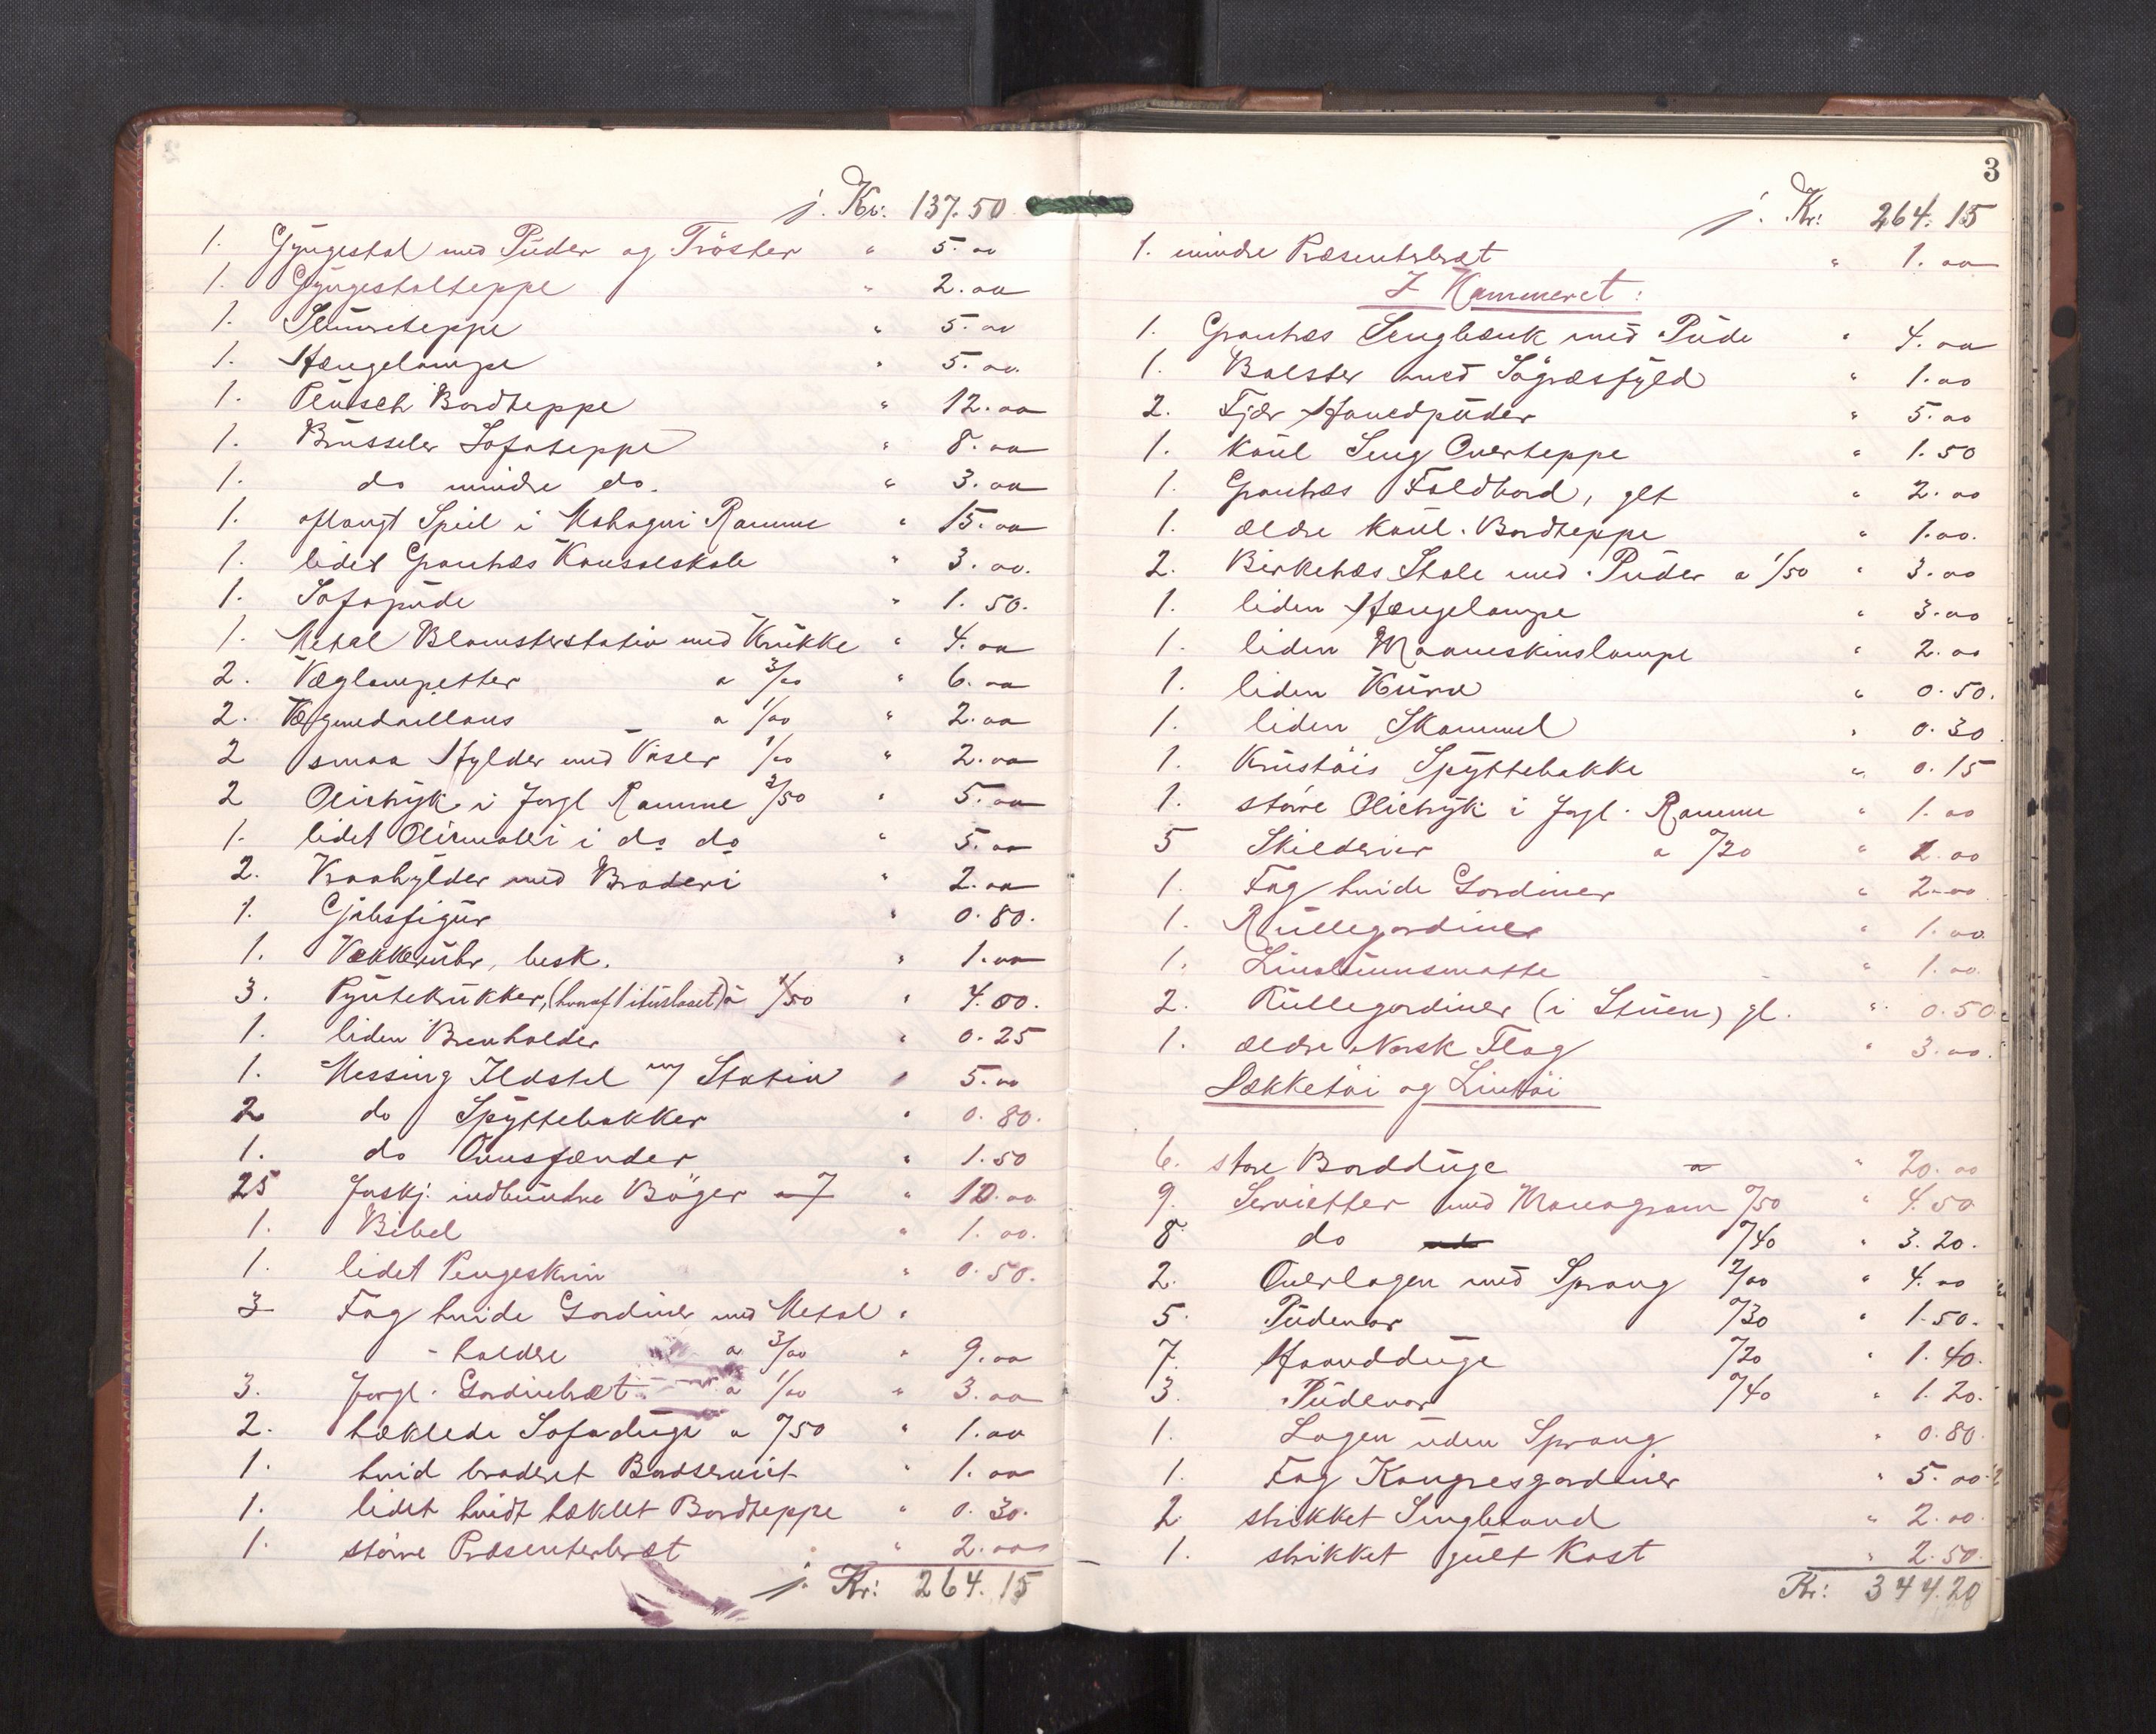 j. Kr. 137.50
1. Gyngestol med Puder og Trøster " 5.00
1. Gyngestolteppe " 2.00
1. Slumreteppe " 5.00
1. Hængelampe " 5.00
1. Plüsch Bordteppe " 12.00
1. Brüsseler Sofateppe " 8.00
1. do mindre do. " 3.00
1. aflangt Speil i Mahogni Ramme " 15.00
1. lidet Grantræs Konsolskab " 3.00.
1. Sofapude " 1.50.
1. Metal Blomsterstativ med Krukke " 4.00
2. Væglampetter a 3/00 " 6.00
2. Vægmedaillons a 1/00 " 2.00
2 smaa Hylder med Vaser 1/00 " 2.00
2 Olietryk i forgl Ramme 2/50 " 5.00
1. lidet Oliemaleri i do do " 5.00
2. Kraahylder med Broderi " 2.00
1. Gibsfigur " 0.80.
1. Vækkeruhr, besk. " 1.00
3. Pyntekrukker, (hvoraf 1 ituslaaet) a 1/50 " 4.00.
1. liden Brevholder " 0.25
1. Messing Ildstel m/ Stativ " 5.00
2 do Spyttebakker " 0.80.
1. do Ovnsfænder " 1.50
25 forskj. indbundne Bøger a 7 " 10.00
1. Bibel " 1.00.
1. lidet Pengeskrin " 0.50.
3 Fag hvide Gardiner med Metal "
- holdre a 3/00 " 9.00
3. forgl. Gardinbræt a 1/00 " 3.00
2. hæklede Sofaduge a 0/50 " 1.00
1. hvid broderet Bordserviet " 1.00
1. lidet hvidt hæklet Bordteppe " 0.30.
1. større Præsenterbræt " 2.00
j. Kr: 264.15
3
j. Kr: 264.15
1. mindre Præsenterbræt " 1.00
I Kammeret:
1. Grantræs Sengbænk med Pude " 4.00
1. Bolster med Søgræsfyld " 1.00
2. Fjær Hovedpuder " 5.00
1. koul Seng Overteppe " 1.50
1. Grantræs Foldbord, glt " 2.00
1. ældre koul. Bordteppe " 1.00.
2. Birketræs Stole med Puder a 1/50 " 3.00
1. liden Hængelampe " 3.00
1. liden Maaneskinslampe " 2.00
1. liden Kurv " 0.50.
1. liden Skammel " 0.30
1. Krustøis Spyttebakke " 0.15
1. større Olietryk i forgl. Ramme " 1.00
5 Skilderier a 0/20 " 1.00
1. Fag hvide Gardiner " 2.00
1. Rullegardiner " 1.00
1. Linoleumsmatte " 1.00.
2. Rullegardiner (i Stuen) gl. " 0.50
1. ældre Norsk Flag " 3.00.
Dækketøi og Lintøi
6. store Bordduge a " 20.00
9. Servietter med Monogram 0/50 " 4.50
8. do 0/40 " 3.20.
2. Overlagen med Sprang 2/00 " 4.00
5. Pudevar 0/30 " 1.50.
7. Haandduge 0/20 " 1.40.
3. Pudevar 0/40 " 1.20.
1. Lagen uden Sprang " 0.80.
1. Fag Kongresgardiner " 5.00
2 strikket Sengbaand " 2.00.
1. strikket gult Kast " 2.50.
Kr: 344.20